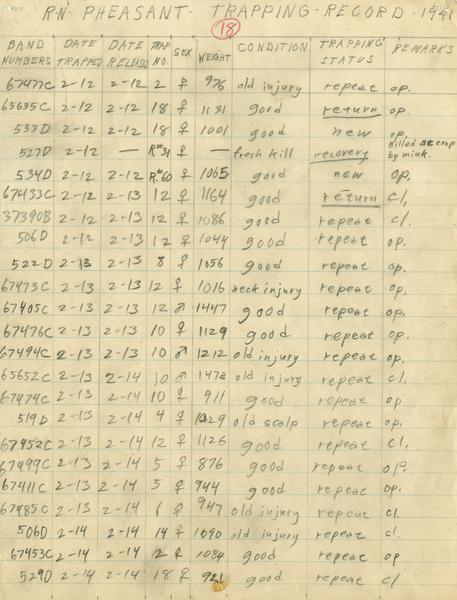 RN- PHEASANT- TRAPPING- RECORD - 1941
18
BAND NUMBERS DATE TRAPPED DATE RELEASED TRAP NO. SEX WEIGHT CONDITION TRAPPING STATUS REMARKS
67477C 2-12 2-12 2 ♀ 976 old injury repeat op.
65635C 2-12 2-12 18 ♀ 1131 good return op.
533D 2-12 2-12 18 ♀ 1001 good new op.
527D 2-12 — R#31 ♀ — fresh kill recovery killed at trap by mink.
534D 2-12 2-12 R#60 ♀ 1065 good new op.
67433C 2-12 2-13 12 ♀ 1164 good return cl,
37390B 2-12 2-13 12 ♀ 1086 good repeat cl.
506D 2-12 2-13 12 ♀ 1044 good repeat op.
522D 2-13 2-13 8 ♀ 1056 good repeat op.
67473C 2-13 2-13 12 ♀ 1016 neck injury repeat op.
67405C 2-13 2-13 12 ♂ 1447 good repeat op.
67476C 2-13 2-13 10 ♀ 1129 good repeat op.
67494C 2-13 2-13 10 ♂ 1212 old injury repeat op.
65652C 2-13 2-14 10 ♂ 1472 old injury repeat cl.
67474C 2-13 2-14 10 ♀ 911 good repeat op
519D 2-13 2-14 4 ♀ 1029 old scalp repeat op.
67452C 2-13 2-14 12 ♀ 1126 good repeat cl,
67499C 2-13 2-14 5 ♀ 876 good repeat op.
67411C 2-13 2-14 5 ♀ 944 good repeat op.
67485C 2-13 2-14 1 ♀ 947 old injury repeat cl.
506D 2-14 2-14 14 ♀ 1090 old injury repeat cl.
67453C 2-14 2-14 2 ♀ 1084 good repeat op
529D 2-14 2-14 18 ♀ 921 good repeat cl